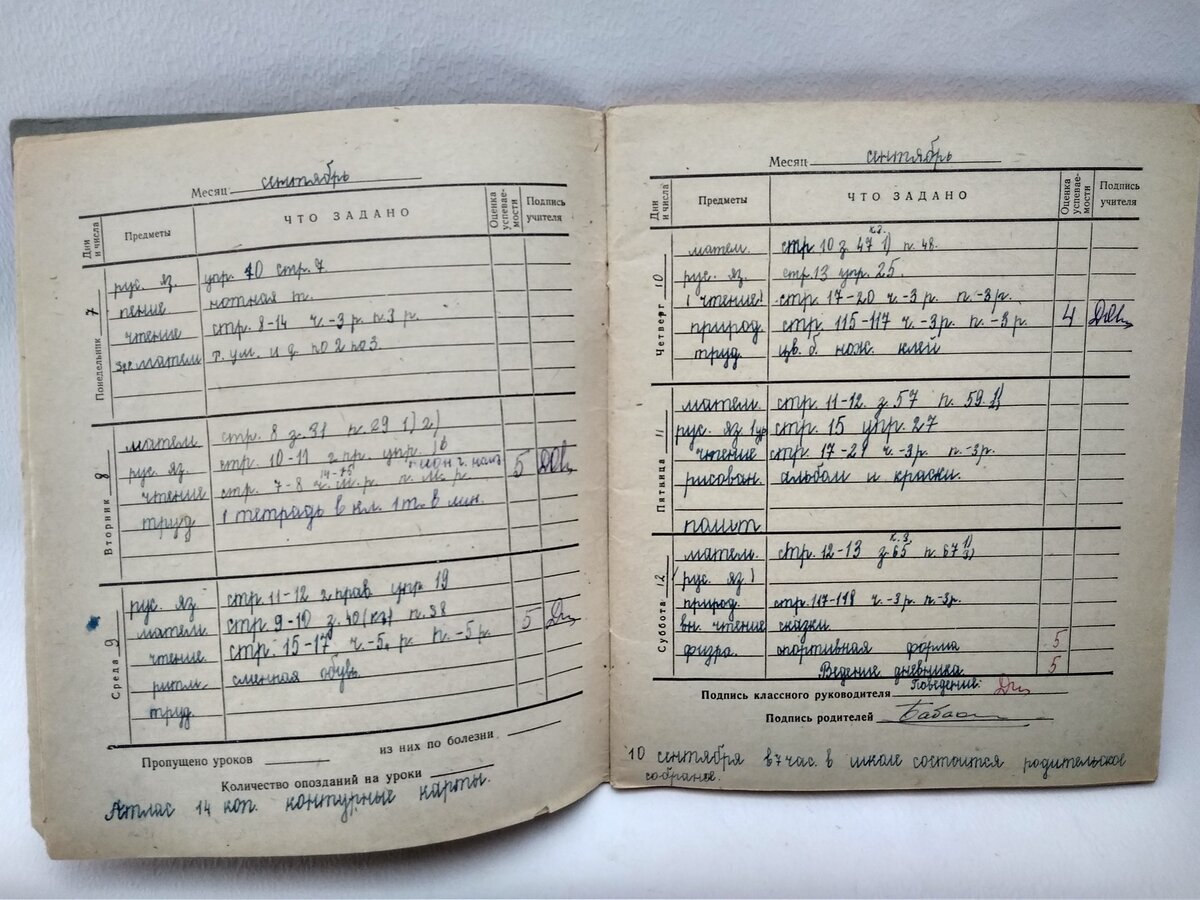 Месяц сентябрь
Дни и числа Предметы ЧТО ЗАДАНО Оценка успеваемости Подпись учителя
Понедельник 7
рус. яз. упр. 10 стр. 7
пение нотная т.
чтение стр. 8-14 ч.-3 р. п.3 р.
матем т. ум. и д. по 2 по 3
Вторник 8
матем стр. 8 з. 31 п. 29 1) 2)
рус. яз. стр. 10-11 упр. 16
чтение стр. 7-8 5
труд 1 тетрадь в кл. 1 т. в лин.
Среда 9
рус. яз стр. 11-12 прав упр. 19
матем. стр 9-10 з. 40 (кз) п. 38 5
чтение стр. 15-17 ч.-5 р. п.-5 р.
ритм. сменная обувь.
труд.
Пропущено уроков из них по болезни
Количество опозданий на уроки
Атлас 14 коп. контурные карты.
Месяц сентябрь
Дни и числа Предметы ЧТО ЗАДАНО Оценка успеваемости Подпись учителя
Четверг 10
матем. стр 10 з. 47 1) п. 48.
рус. яз. стр. 13 упр. 25.
чтение! стр. 17-20 ч.-3 р. п.-3 р.
природ. стр. 115-117 ч.-3 р. п.-3 р. 4
труд. цв. б. нож. клей
Пятница 11
матем. стр. 11-12. з. 57 п. 59.
рус. яз стр. 15 упр. 27
чтение стр. 17-21 ч.-3 р. п.-3 р.
рисован. альбом и краски.
Суббота 12
матем. стр. 12-13 з. 65 к.з. п. 67
(рус. яз.)
природ. стр. 117-118 ч.-3 р. п.-3 р.
вн. чтение сказки.
физра. спортивная форма 5
Ведение дневника. 5
Поведение:
Подпись классного руководителя
Подпись родителей
10 сентября в 7 час. в школе состоится родительское
собрание.